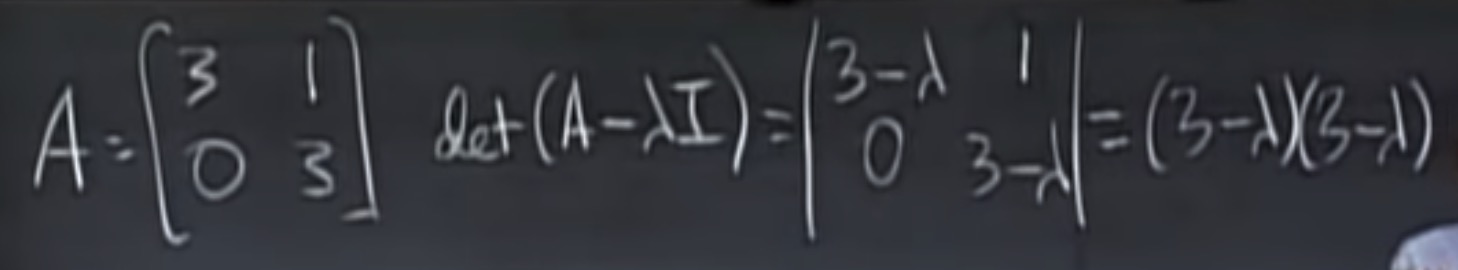 A = [3 1; 0 3] det(A - λI) = |3-λ 1; 0 3-λ| = (3-λ)(3-λ)